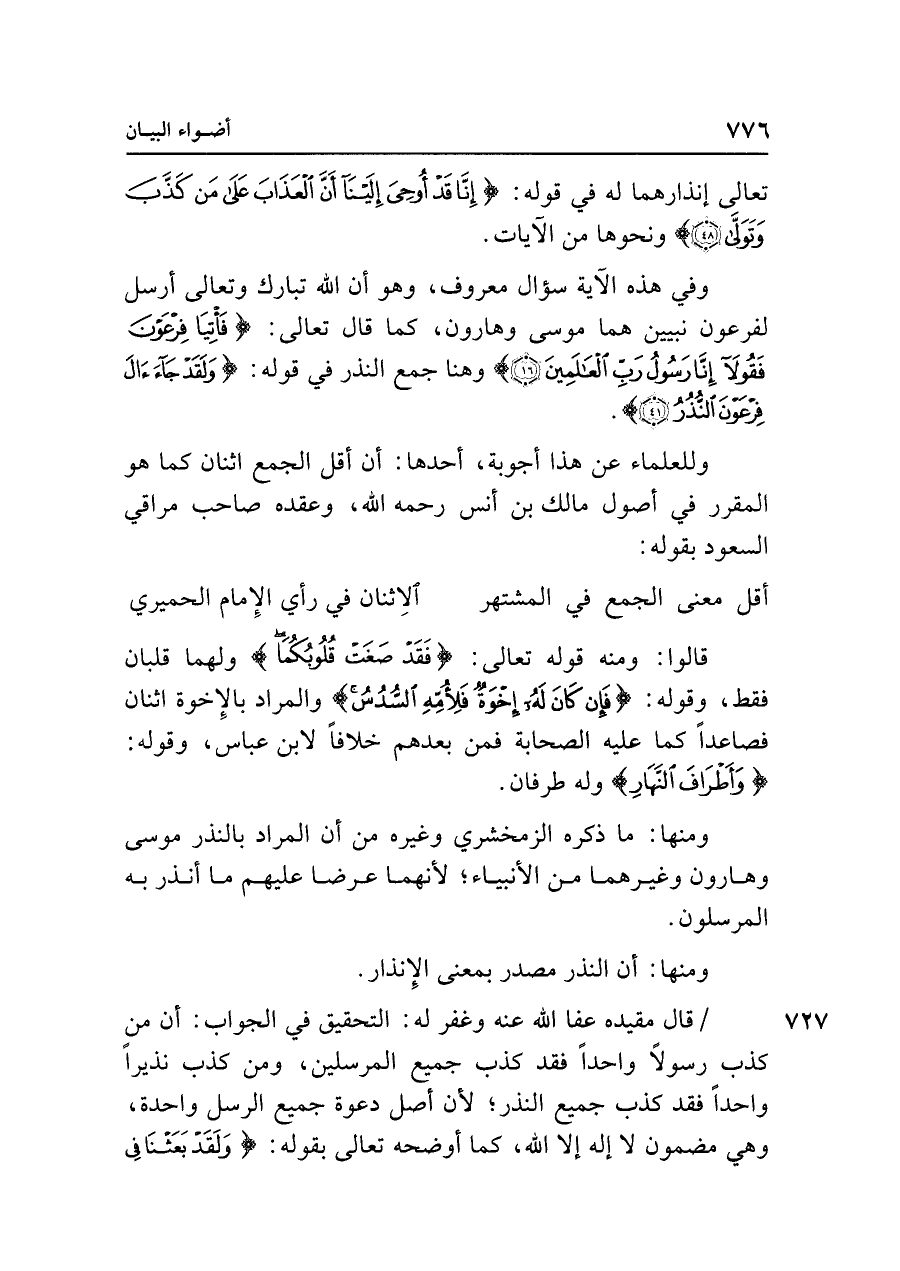 ٧٧٦ أضـواء البيـان
تعالى إنذارهما له في قوله: ﴿ إِنَّا قَدۡ أُوحِيَ إِلَيۡنَآ أَنَّ ٱلۡعَذَابَ عَلَىٰ مَن كَذَّبَ
وَتَوَلَّىٰ ٤٨﴾ ونحوها من الآيات.
وفي هذه الآية سؤال معروف، وهو أن الله تبارك وتعالى أرسل
لفرعون نبيين هما موسى وهارون، كما قال تعالى: ﴿ فَأۡتِيَا فِرۡعَوۡنَ
فَقُولَآ إِنَّا رَسُولُ رَبِّ ٱلۡعَٰلَمِينَ ١٦﴾ وهنا جمع النذر في قوله: ﴿ وَلَقَدۡ جَآءَ ءَالَ
فِرۡعَوۡنَ ٱلنُّذُرُ ٤١﴾.
وللعلماء عن هذا أجوبة، أحدها: أن أقل الجمع اثنان كما هو
المقرر في أصول مالك بن أنس رحمه الله، وعقده صاحب مراقي
السعود بقوله:
أقل معنى الجمع في المشتهر ٱلاِثنان في رأي الإِمام الحميري
قالوا: ومنه قوله تعالى: ﴿ فَقَدۡ صَغَتۡ قُلُوبُكُمَاۖ ﴾ ولهما قلبان
فقط، وقوله: ﴿ فَإِن كَانَ لَهُۥٓ إِخۡوَةٞ فَلِأُمِّهِ ٱلسُّدُسُۚ ﴾ والمراد بالإِخوة اثنان
فصاعداً كما عليه الصحابة فمن بعدهم خلافاً لابن عباس، وقوله:
﴿ وَأَطۡرَافَ ٱلنَّهَارِ ﴾ وله طرفان.
ومنها: ما ذكره الزمخشري وغيره من أن المراد بالنذر موسى
وهـارون وغيـرهمـا مـن الأنبيـاء؛ لأنهمـا عـرضـا عليهـم مـا أنـذر بـه
المرسلون.
ومنها: أن النذر مصدر بمعنى الإِنذار.
/ قال مقيده عفا الله عنه وغفر له: التحقيق في الجواب: أن من ٧٢٧
كذب رسولاً واحداً فقد كذب جميع المرسلين، ومن كذب نذيراً
واحداً فقد كذب جميع النذر؛ لأن أصل دعوة جميع الرسل واحدة،
وهي مضمون لا إله إلا الله، كما أوضحه تعالى بقوله: ﴿ وَلَقَدۡ بَعَثۡنَا فِي